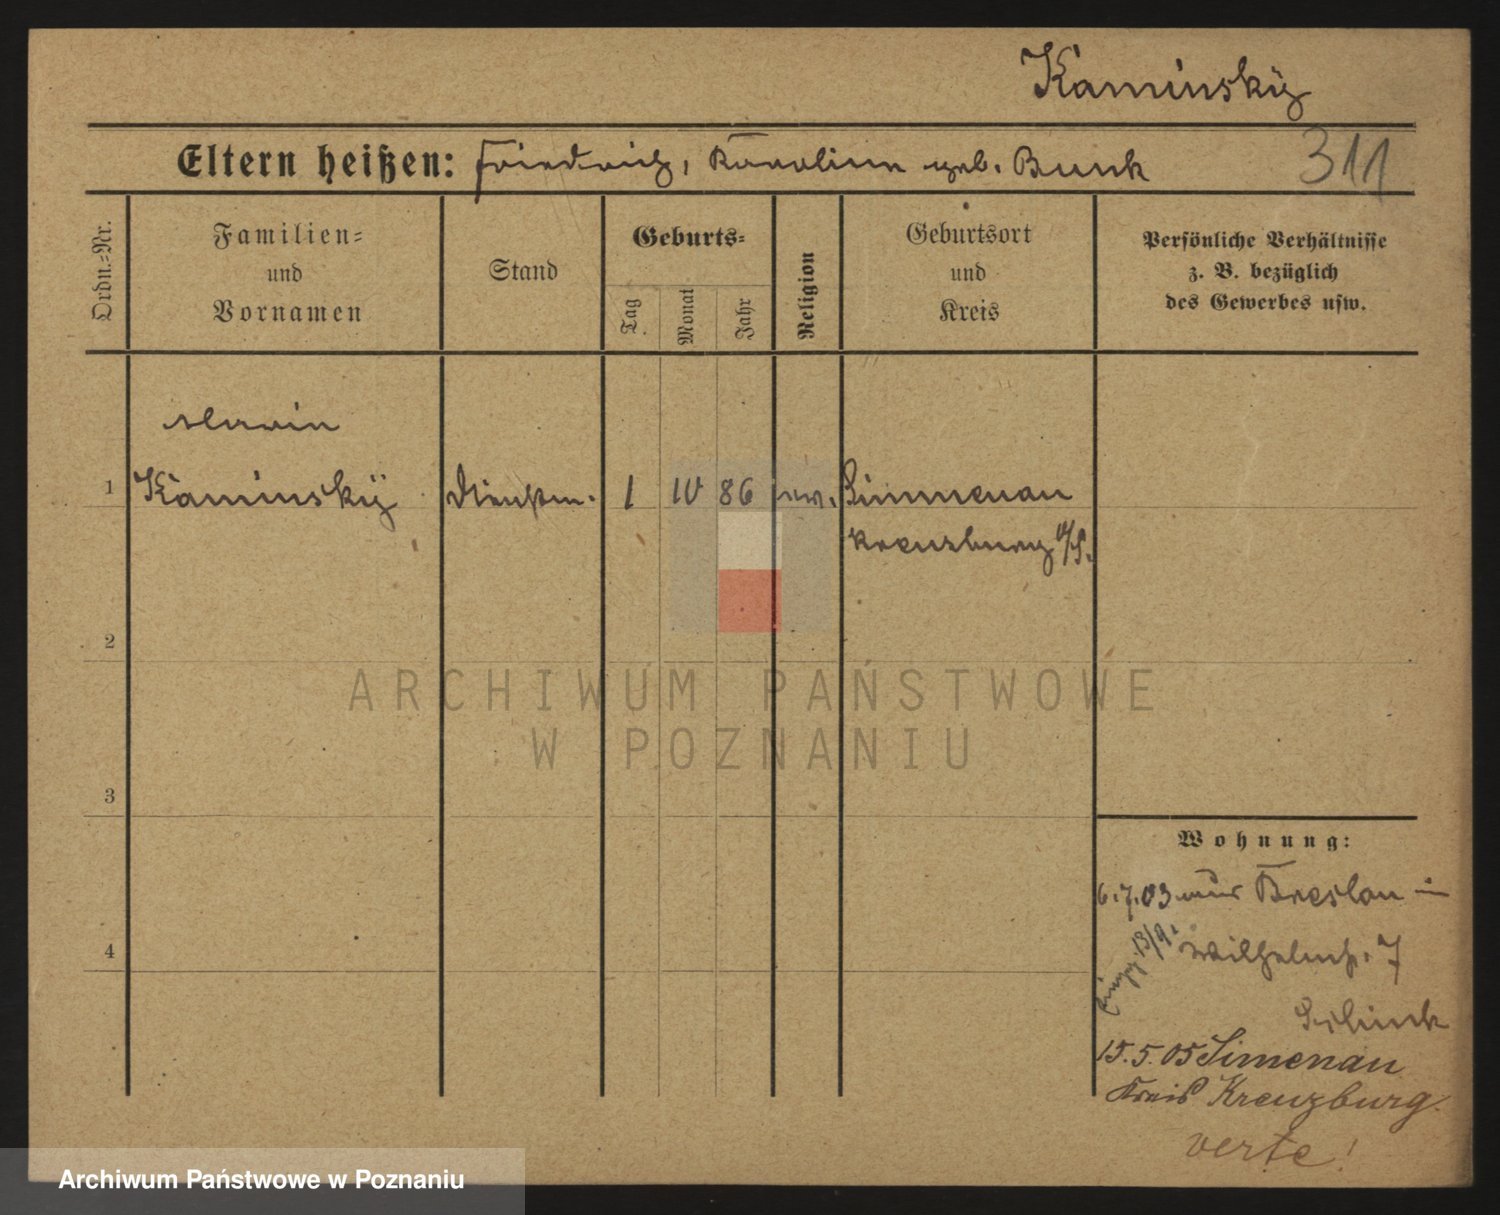 Kaminsky
Eltern heißen: Friedrich, Karoline geb. Bunk
311
Ordn.-Nr.
Familien-
und
Vornamen
Stand
Geburts-
Tag
Monat
Jahr
Religion
Geburtsort
und
Kreis
Persönliche Verhältnisse
z. B. bezüglich
des Gewerbes usw.
Marie
1 Kaminsky Dienstm. 1 10 86 ev. Simmenau
Kreuzburg O/S.
2
3
4
Wohnung:
6.7.03 aus Breslau in
13/9.
Wilhelmstr. 7
15.5.05 Simenau
Kreis Kreuzburg.
verte!
ARCHIWUM PAŃSTWOWE
W POZNANIU
Archiwum Państwowe w Poznaniu